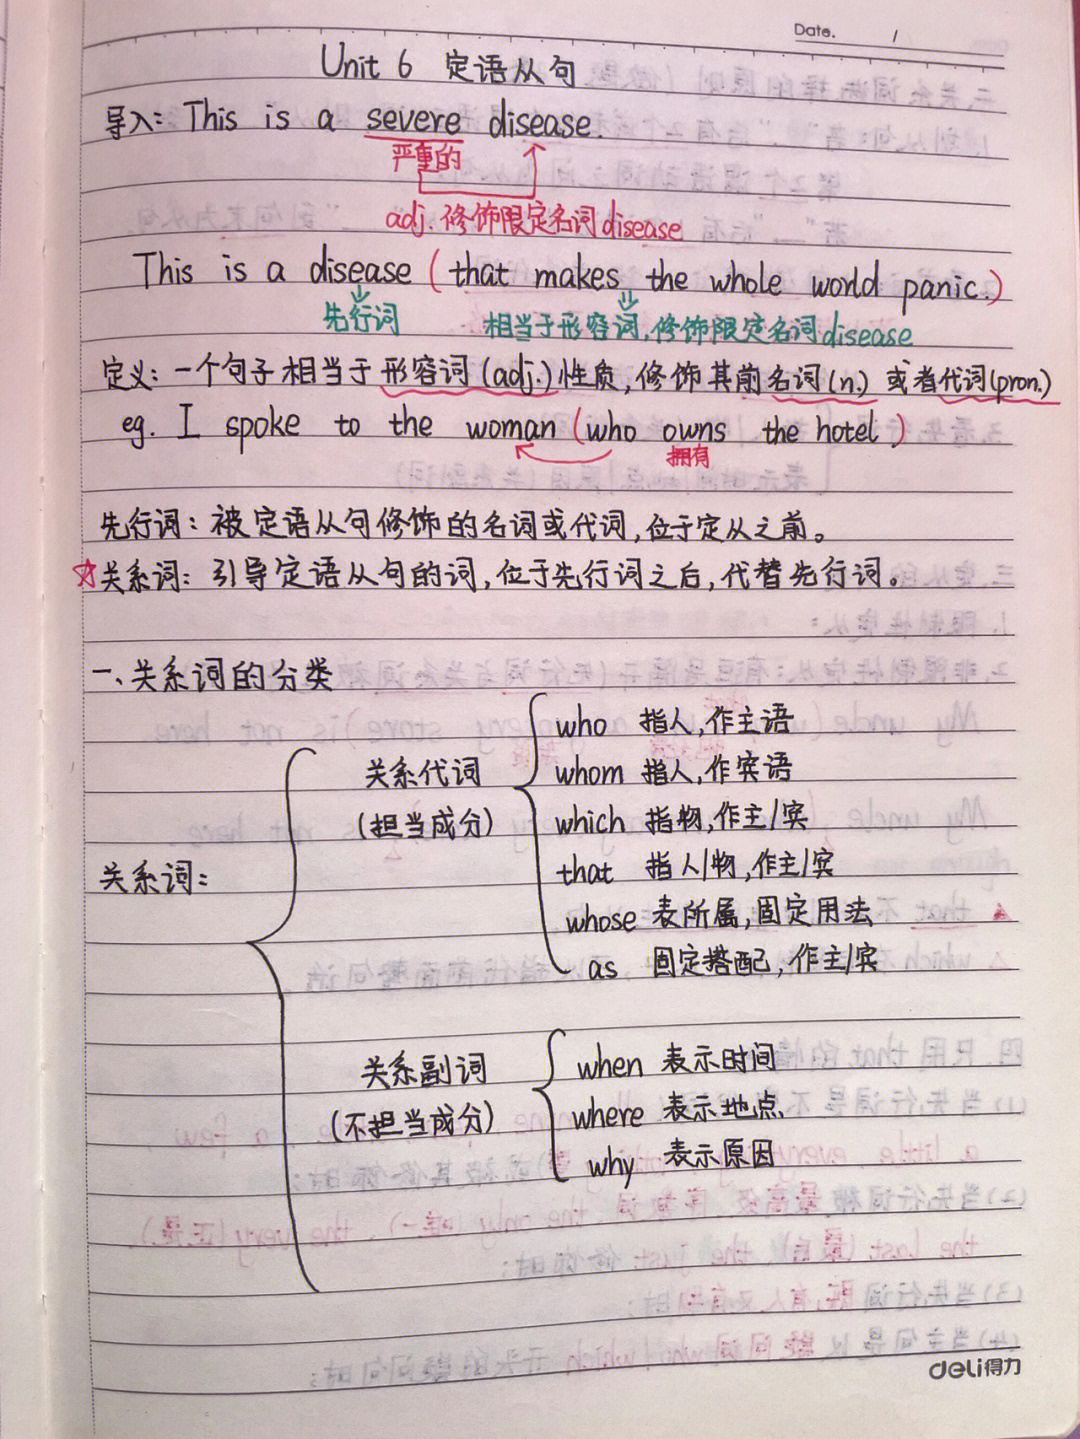 Date. /
Unit 6 定语从句
导入: This is a severe disease.
严重的
adj. 修饰限定名词disease
This is a disease (that makes the whole world panic.)
先行词 相当于形容词,修饰限定名词disease
定义:一个句子相当于形容词(adj.)性质,修饰其前名词(n.)或者代词(pron.)
eg. I spoke to the woman (who owns the hotel)
拥有
先行词:被定语从句修饰的名词或代词,位于定从之前。
☆关系词:引导定语从句的词,位于先行词之后,代替先行词。
一、关系词的分类
who 指人,作主语
关系代词 whom 指人,作宾语
(担当成分) which 指物,作主/宾
关系词: that 指人/物,作主/宾
whose 表所属,固定用法
as 固定搭配,作主/宾
关系副词 when 表示时间
(不担当成分) where 表示地点
why 表示原因
deli得力